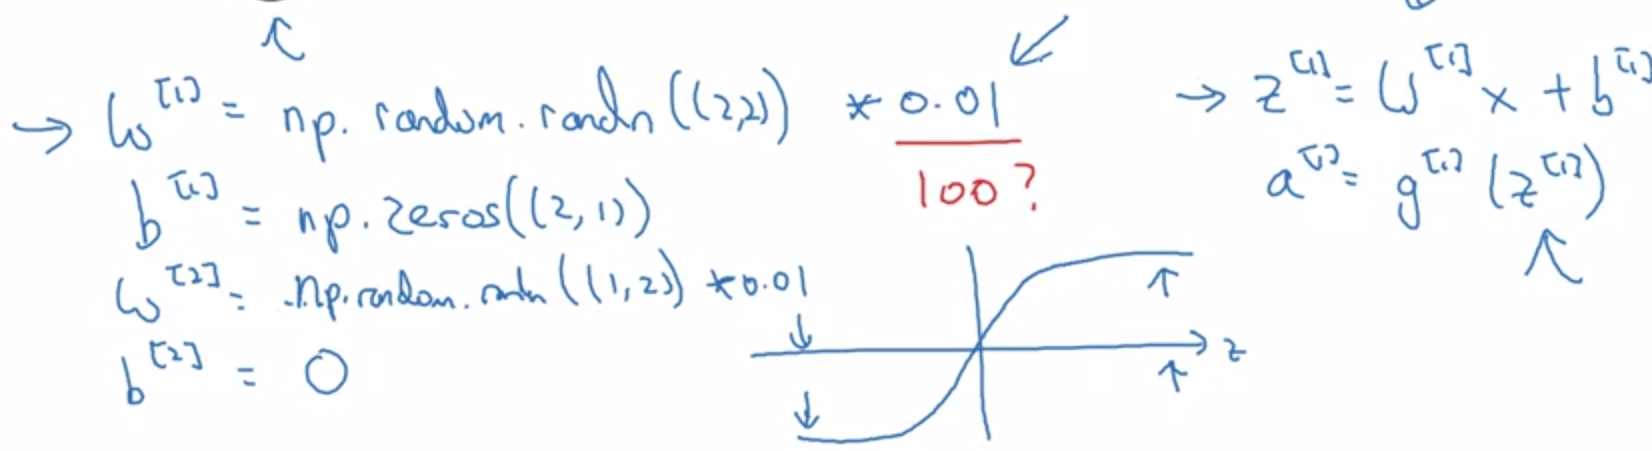 → W^[1] = np.random.randn((2,2)) * 0.01
100?
b^[1] = np.zeros((2,1))
W^[2] = np.random.randn((1,2)) * 0.01
b^[2] = 0
→ z^[1] = W^[1] x + b^[1]
a^[1] = g^[1] (z^[1])
z